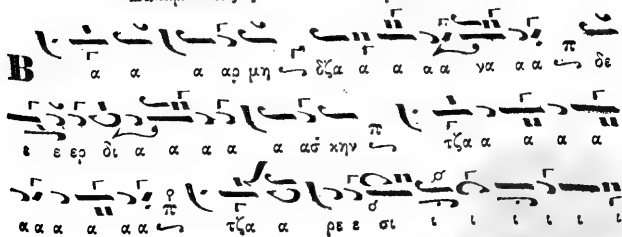 Β α α α αρ μη δζα α α α α να α α π δε
ε ε ερ δι α α α α α ασ κην π τζα α α α α
α α α α α α π τζα α ρε ε σι ι ι ι ι ι ι